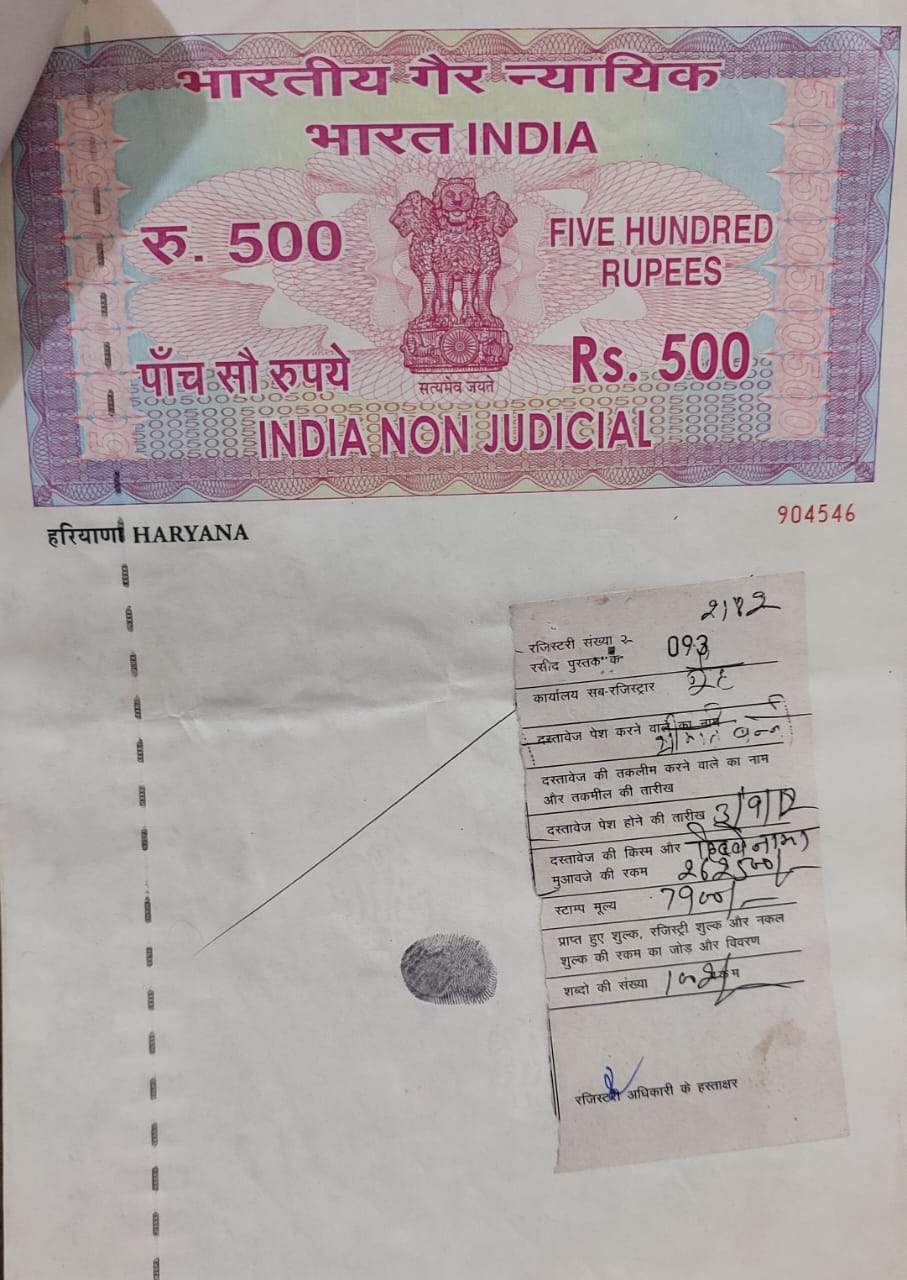 भारतीय गैर न्यायिक
भारत INDIA
रु. 500
FIVE HUNDRED
RUPEES
पाँच सौ रुपये
Rs. 500
सत्यमेव जयते
INDIA NON JUDICIAL
हरियाणा HARYANA
904546
2182
रजिस्टरी संख्या
रसीद पुस्तक 093
कार्यालय सब-रजिस्ट्रार
दस्तावेज पेश करने वाले का नाम
दस्तावेज की तकलीम करने वाले का नाम
और तकमील की तारीख
दस्तावेज पेश होने की तारीख 3/9/12
दस्तावेज की किस्म और
मुआवजे की रकम 262500/-
स्टाम्प मूल्य 7900/-
प्राप्त हुए शुल्क, रजिस्ट्री शुल्क और नकल
शुल्क की रकम का जोड़ और विवरण
शब्दो की संख्या
रजिस्टरी अधिकारी के हस्ताक्षर